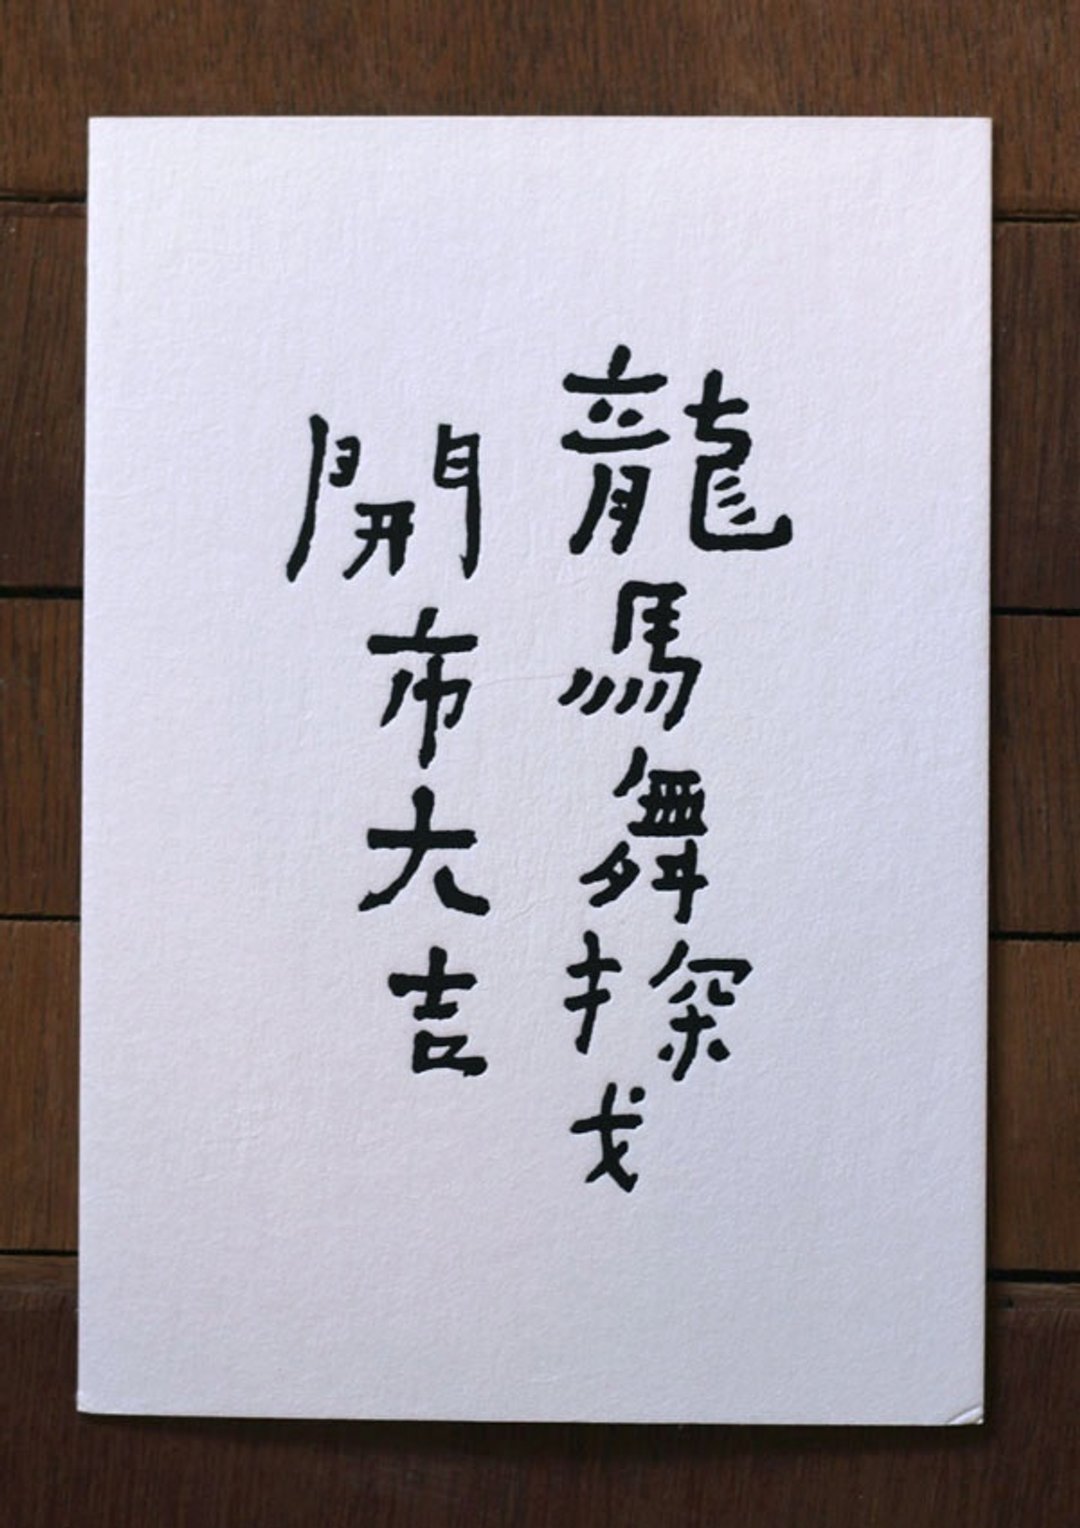 龍馬舞探戈
開市大吉